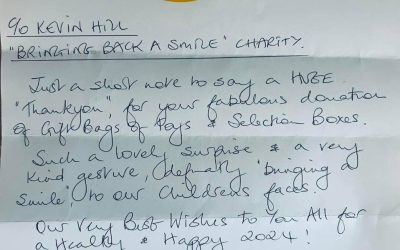 c/o KEVIN HILL
"BRINGING BACK A SMILE" CHARITY.
Just a short note to say a HUGE
"Thankyou", for your fabulous donation
of Gift Bags of Toys & Selection Boxes.
Such a lovely surprise & a very
kind gesture, definatly "bringing a
smile" to our childrens faces.
Our Very Best Wishes to You All for
a Healthy & Happy 2024!